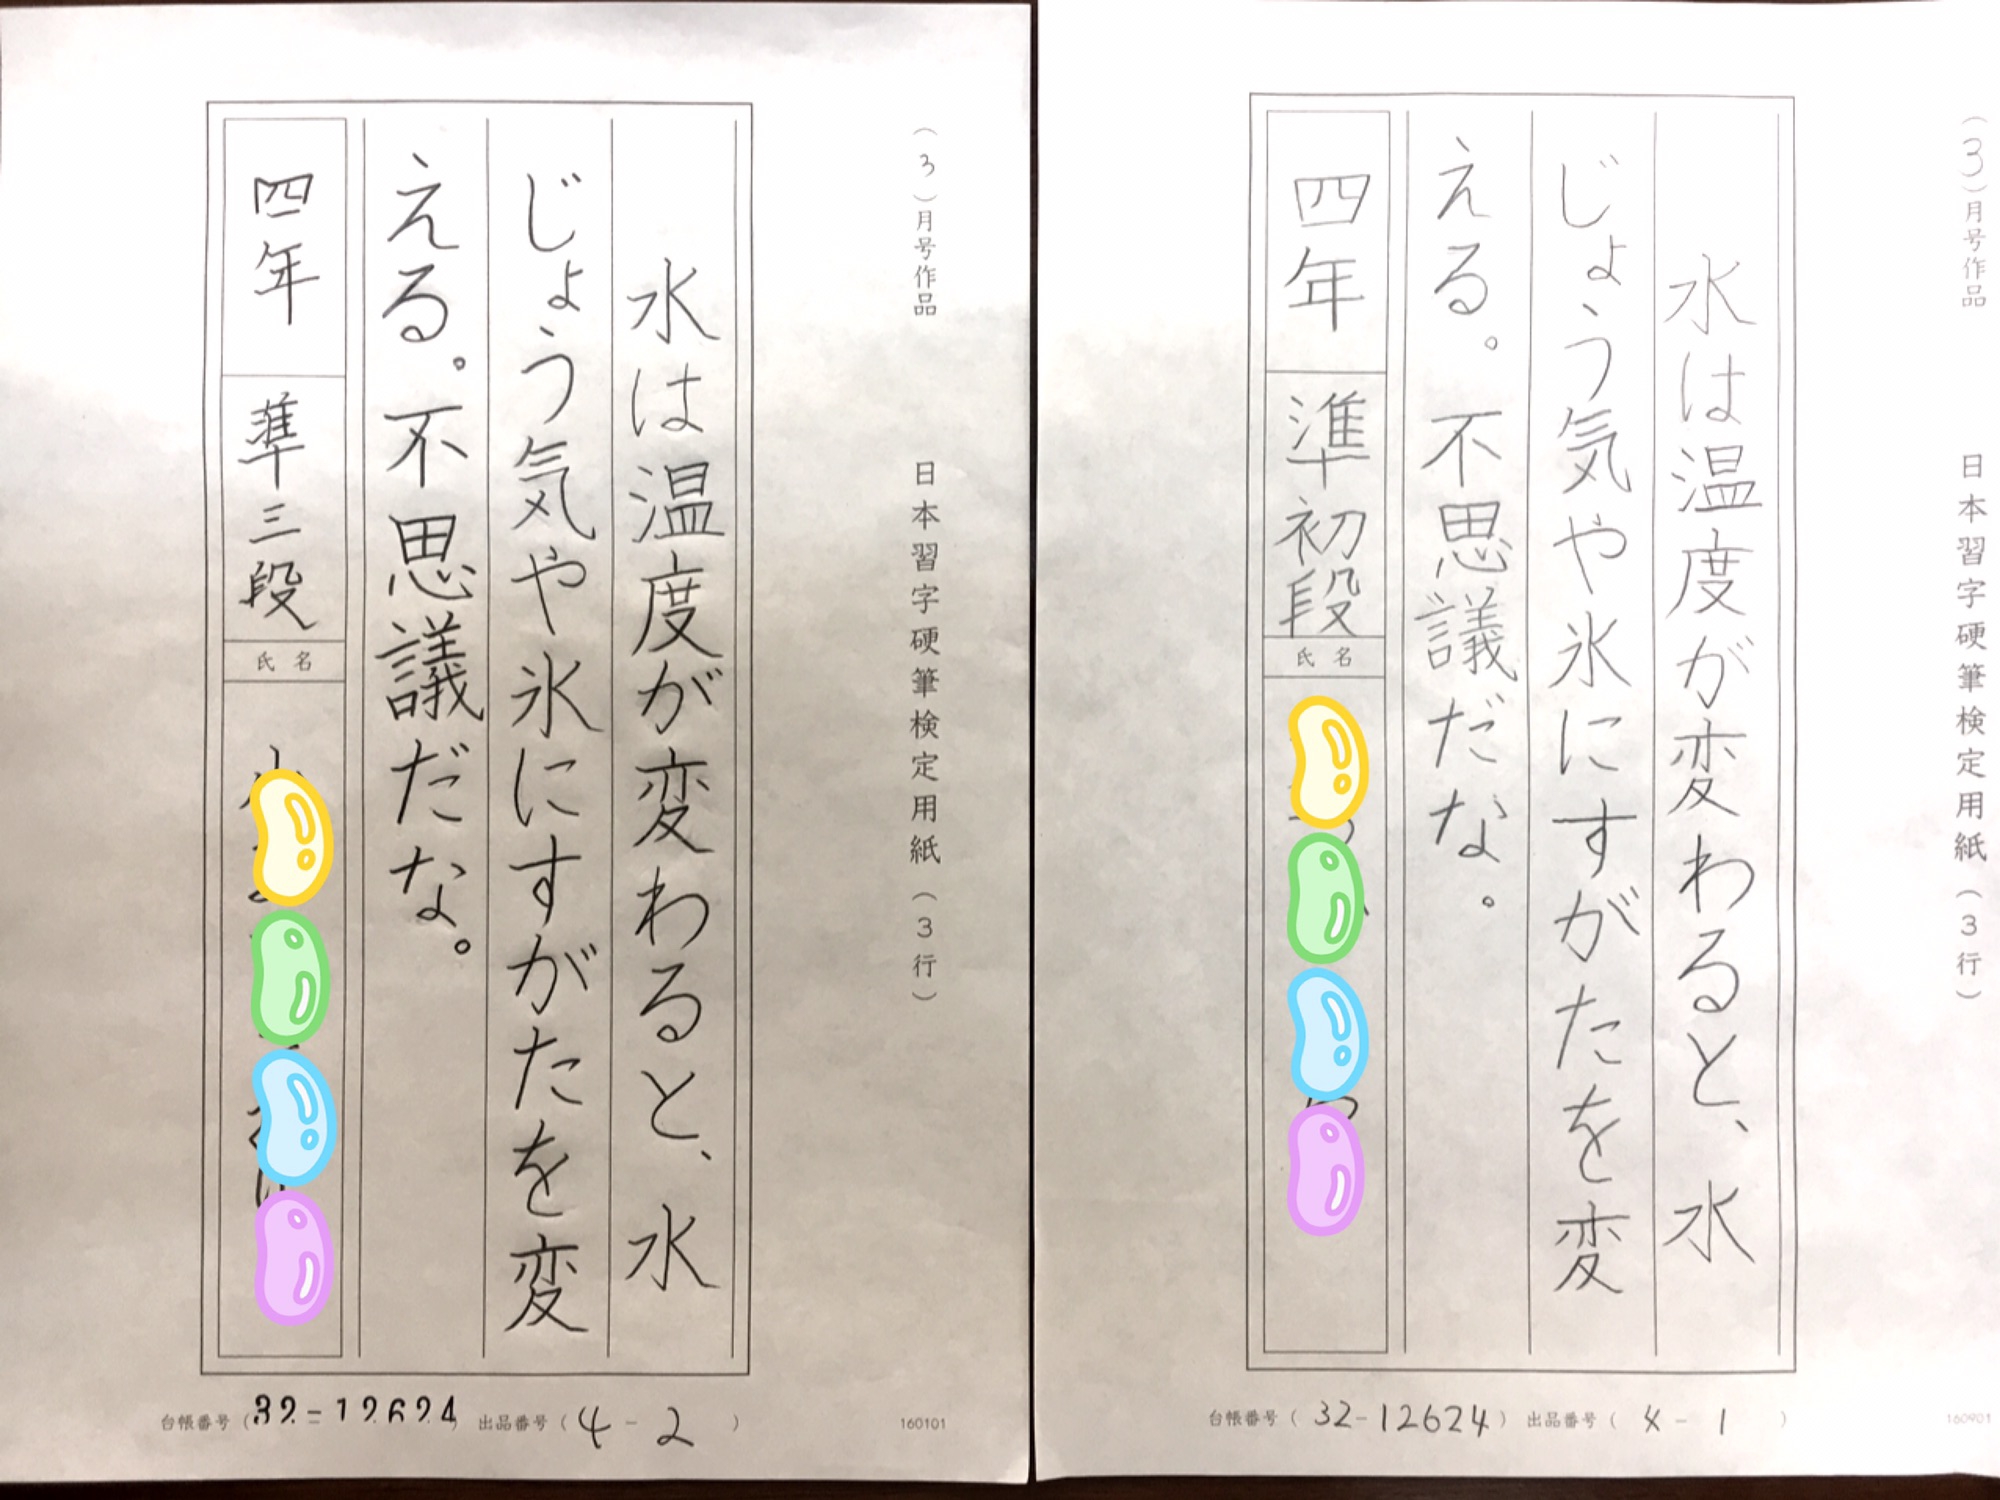 （3）月号作品　日本習字硬筆検定用紙（3行）
水は温度が変わると、水
じょう気や氷にすがたを変
える。不思議だな。
四年 準三段 氏名
台帳番号（32-12624） 出品番号（4-2） 160101
（3）月号作品　日本習字硬筆検定用紙（3行）
水は温度が変わると、水
じょう気や氷にすがたを変
える。不思議だな。
四年 準初段 氏名
台帳番号（32-12624） 出品番号（4-1） 160901